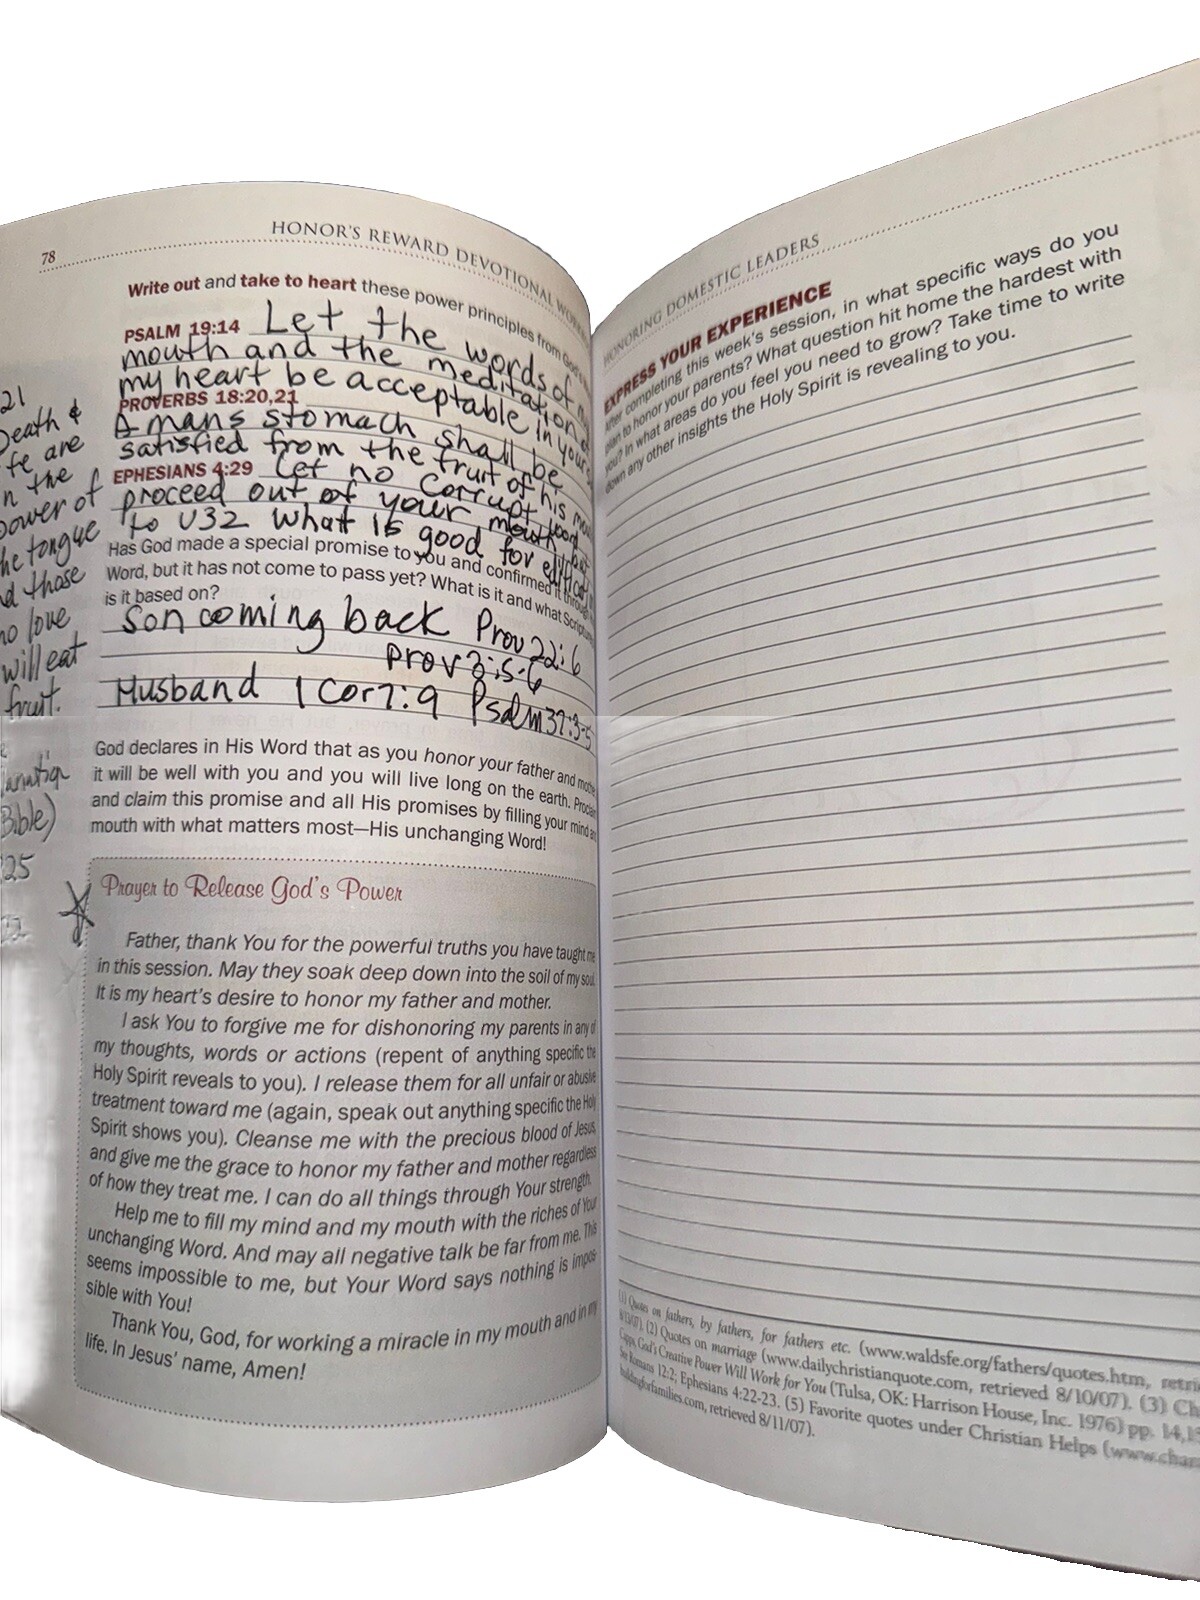 78
HONOR'S REWARD DEVOTIONAL
Write out and take to heart these power principles from God's
PSALM 19:14 Let the words of my
mouth and the meditation of
my heart be acceptable in your
PROVERBS 18:20,21
A mans stomach shall be
satisfied from the fruit of his
EPHESIANS 4:29 Let no corrupt word
proceed out of your mouth, but
to U32 what is good for
Has God made a special promise to you and confirmed it through
Word, but it has not come to pass yet? What is it and what Scripture
is it based on?
Son coming back Prov 22:6
prov 3:5-6
Husband 1 Cor 7:9 Psalm 37:3-5
God declares in His Word that as you honor your father and
it will be well with you and you will live long on the earth.
and claim this promise and all His promises by filling your mind
mouth with what matters most—His unchanging Word!
Prayer to Release God's Power
Father, thank You for the powerful truths you have taught me
in this session. May they soak deep down into the soil of my soul.
It is my heart's desire to honor my father and mother.
I ask You to forgive me for dishonoring my parents in any of
my thoughts, words or actions (repent of anything specific the
Holy Spirit reveals to you). I release them for all unfair or abusive
treatment toward me (again, speak out anything specific the Holy
Spirit shows you). Cleanse me with the precious blood of Jesus,
and give me the grace to honor my father and mother regardless
of how they treat me. I can do all things through Your strength.
Help me to fill my mind and my mouth with the riches of Your
unchanging Word. And may all negative talk be far from me. This
seems impossible to me, but Your Word says nothing is impos-
sible with You!
Thank You, God, for working a miracle in my mouth and in my
life. In Jesus' name, Amen!
21
Death &
fe are
n the
power of
the tongue
nd those
ho love
will eat
fruit.
Bible)
25
HONORING DOMESTIC LEADERS
EXPRESS YOUR EXPERIENCE
After completing this week's session, in what specific ways do you
plan to honor your parents? What question hit home the hardest with
you? In what areas do you feel you need to grow? Take time to write
down any other insights the Holy Spirit is revealing to you.
(1) Quotes on fathers, by fathers, for fathers etc. (www.waldsfe.org/fathers/quotes.htm, retri
8/13/07). (2) Quotes on marriage (www.dailychristianquote.com, retrieved 8/10/07). (3) Ch
Capps, God's Creative Power Will Work for You (Tulsa, OK: Harrison House, Inc. 1976) pp. 14,15
See Romans 12:2; Ephesians 4:22-23. (5) Favorite quotes under Christian Helps (www.char
buildingforfamilies.com, retrieved 8/11/07).